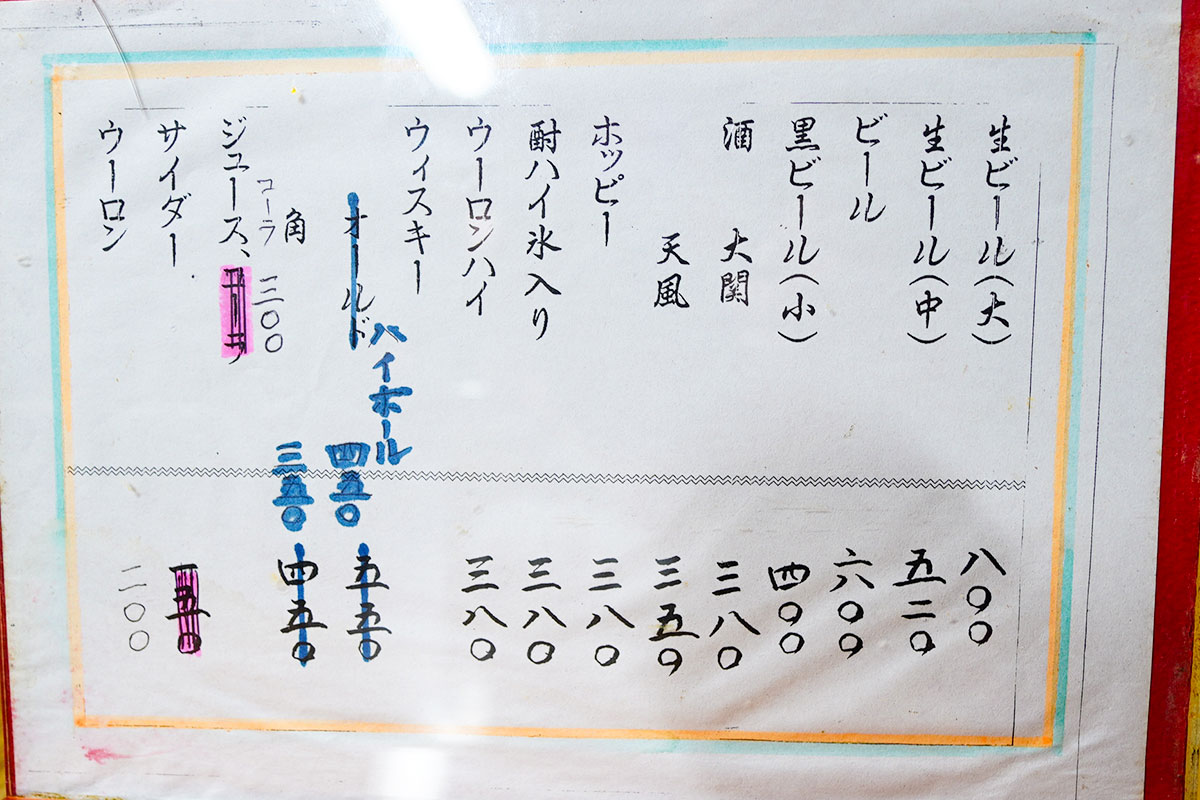 生ビール(大) 八〇〇
生ビール(中) 五二〇
ビール 六〇〇
黒ビール(小) 四〇〇
酒 大関 三八〇
天風 三五〇
ホッピー 三八〇
酎ハイ氷入り 三八〇
ウーロンハイ 三八〇
ウィスキー
ハイボール
オールド 四五〇 五五〇
角 三五〇 四五〇
コーラ 三〇〇
ジュース、コーラ
サイダー 一五〇
ウーロン 二〇〇